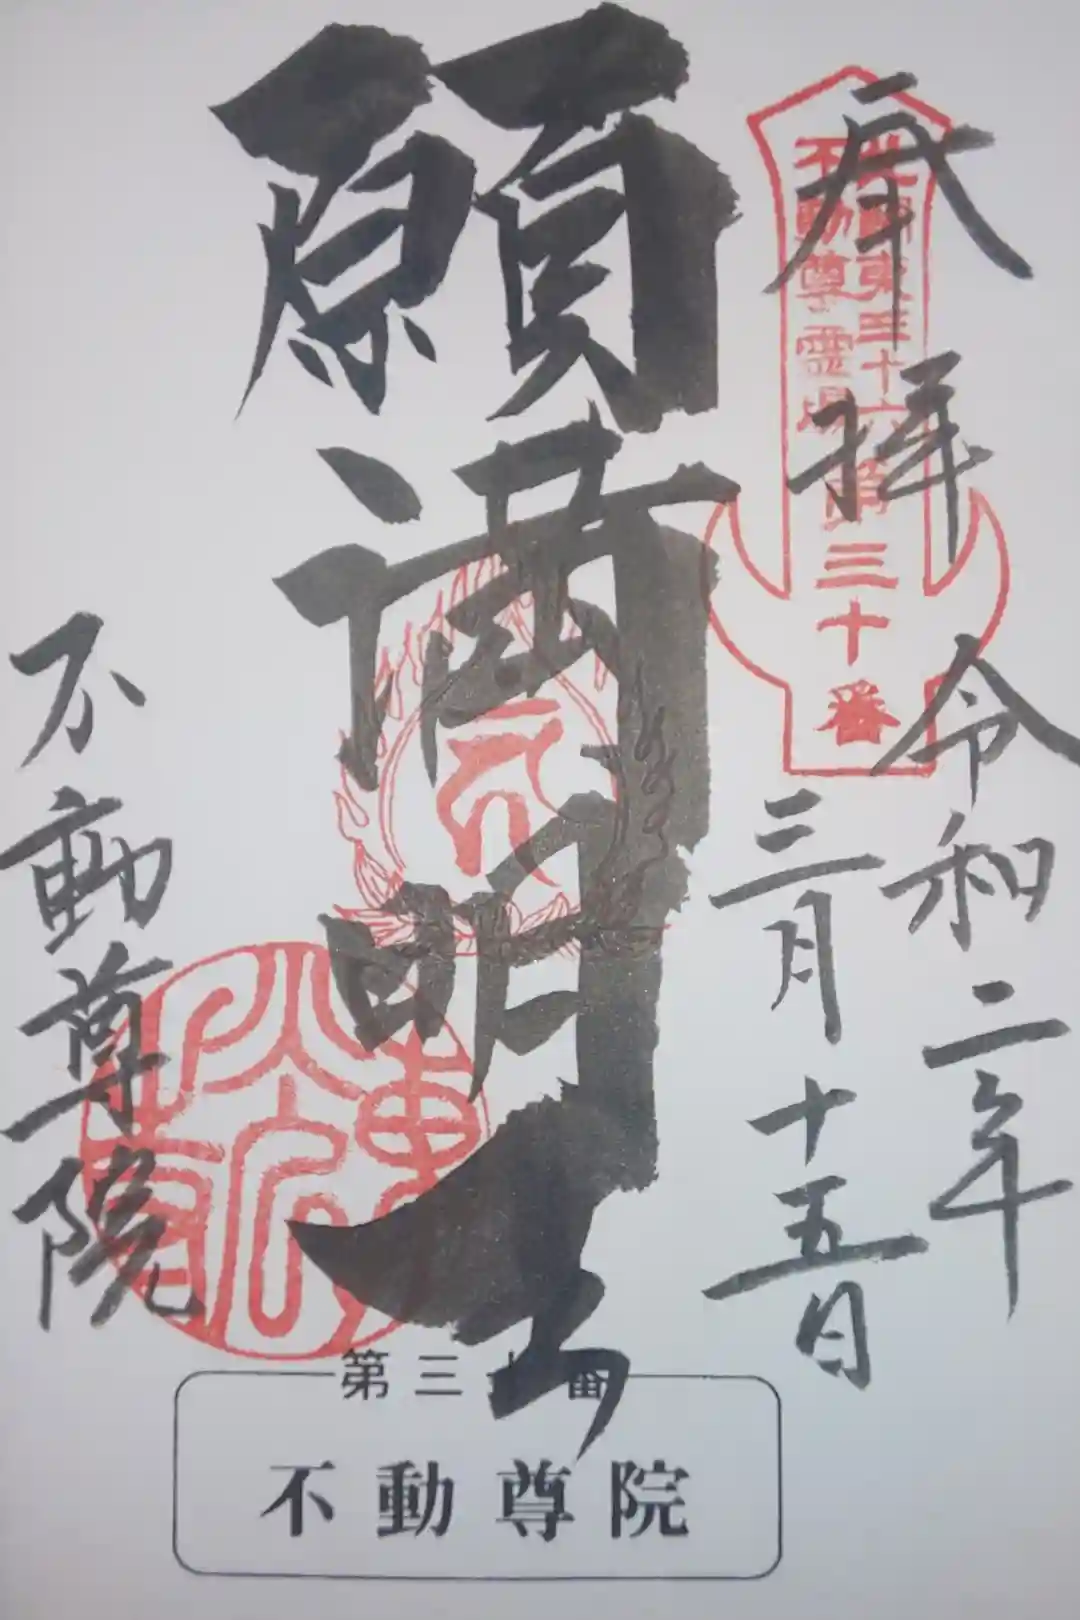 奉拝
令和二年
三月十五日
北関東三十六
不動尊霊場
第三十番
願満明王
不動尊院
第三十番
不動尊院